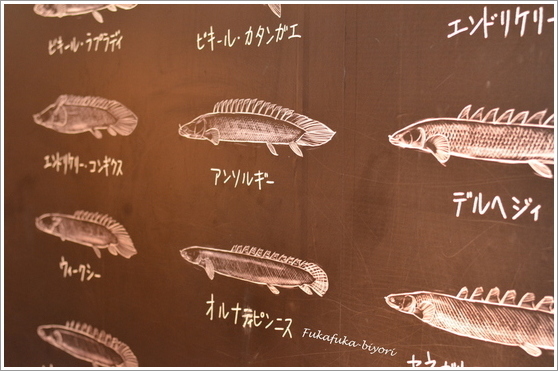 ビキール・ラプラディ
ビキール・カタンガエ
エンドリケリー
エンドリケリー・コンギクス
アンソルギー
デルヘジィ
ウィークシー
オルナティピンニス
Fukafuka-biyori